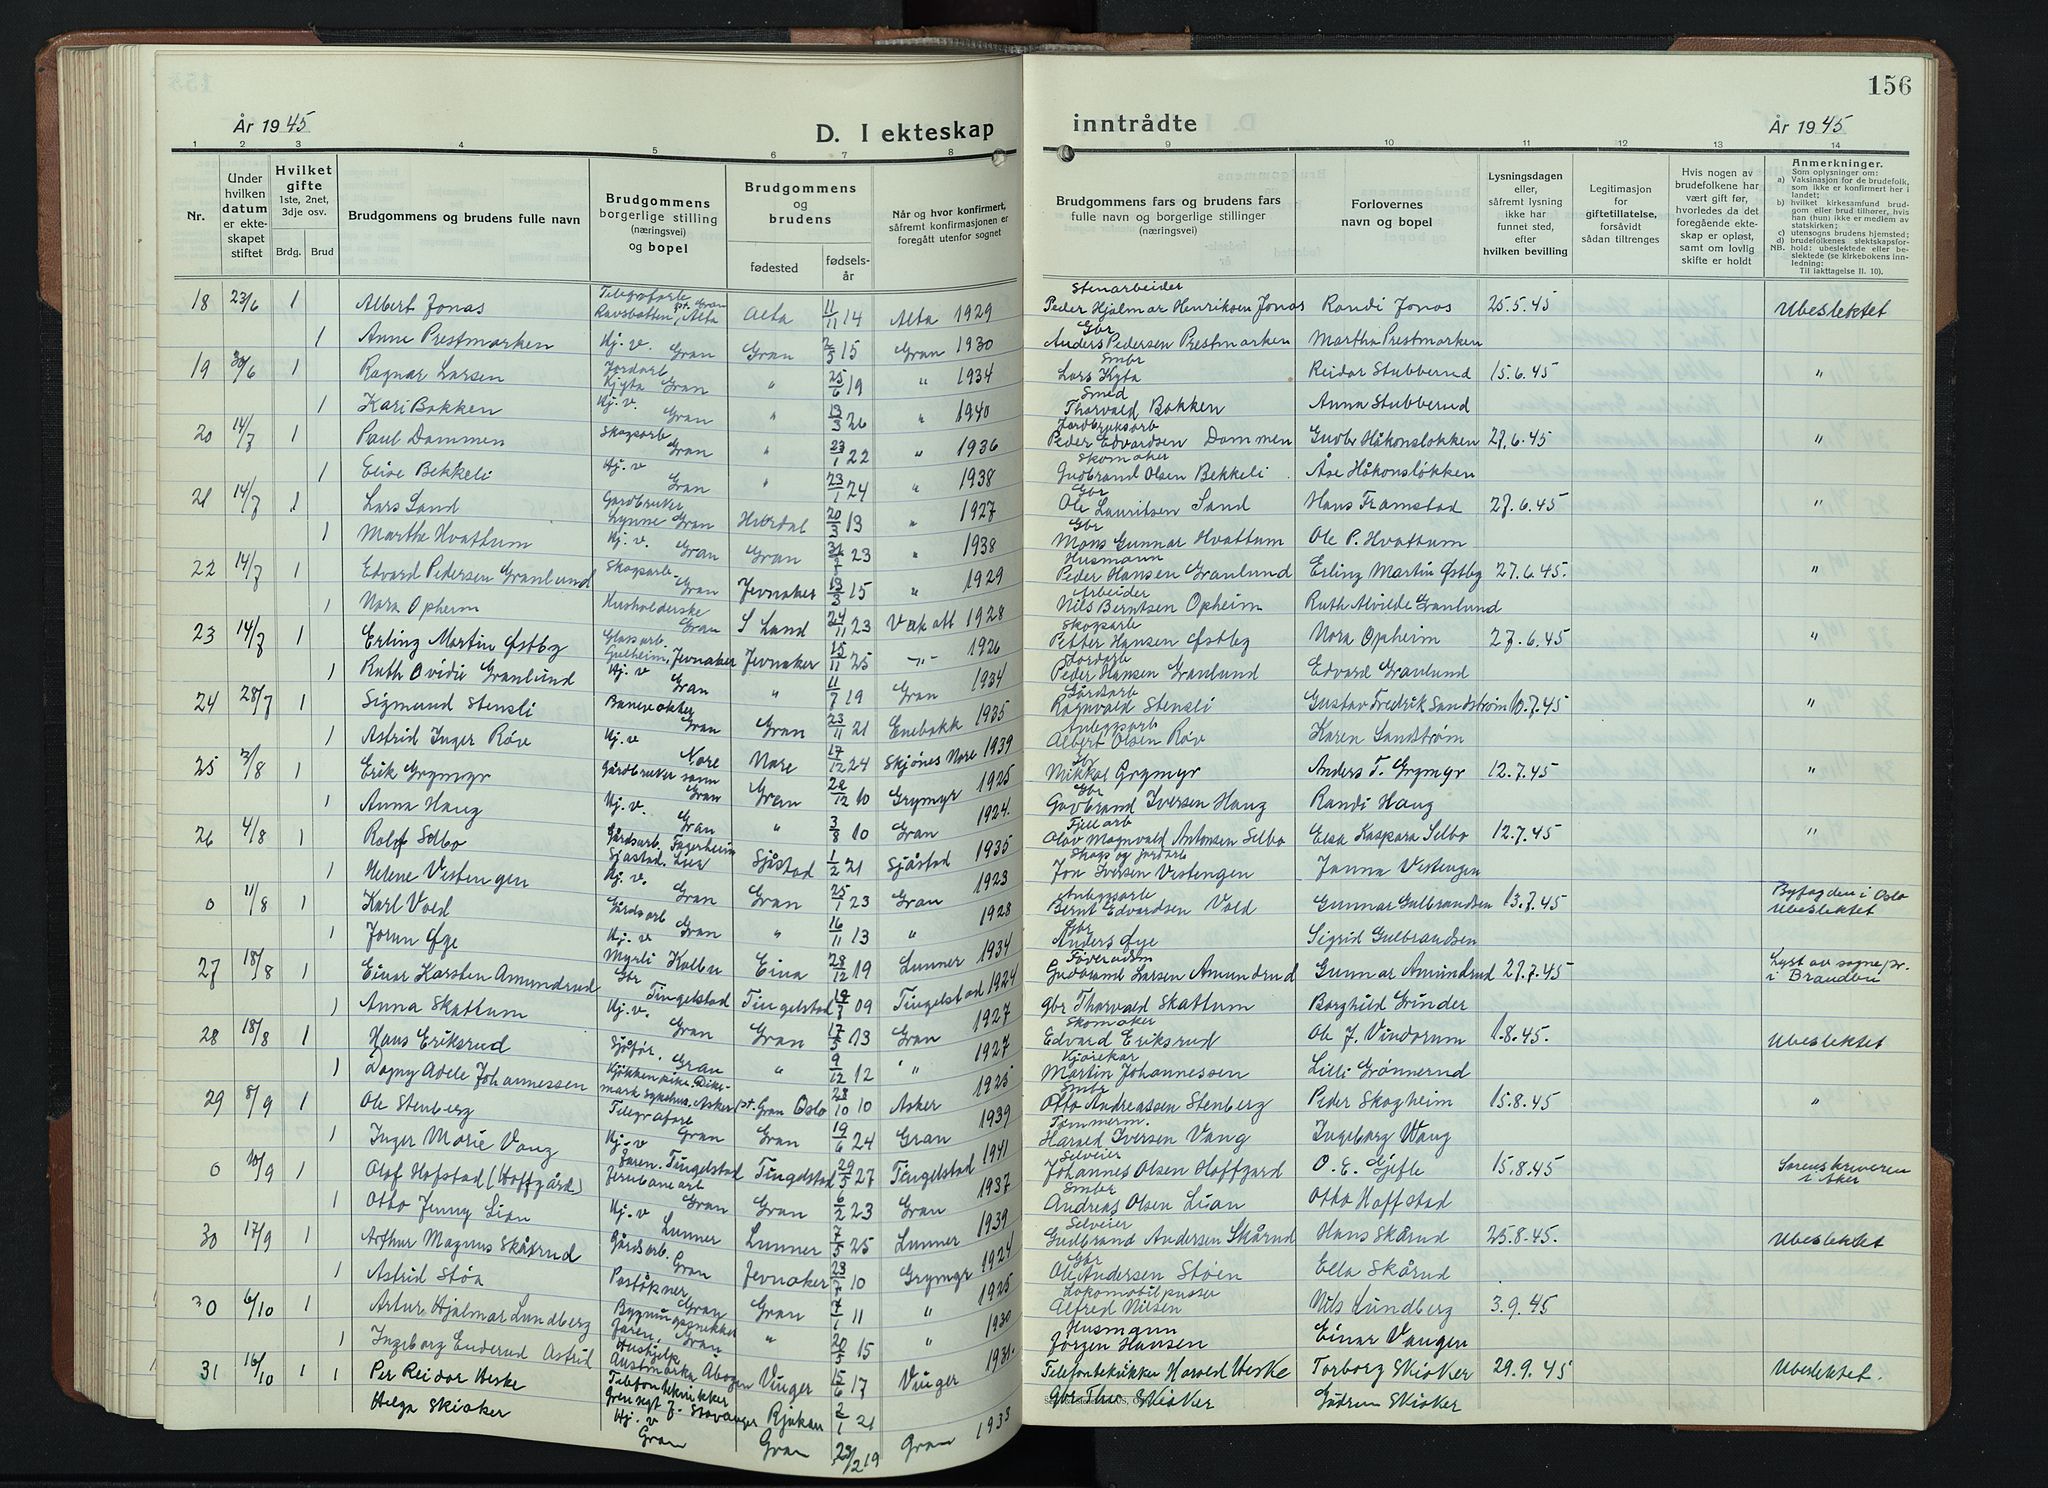 156
År 1945
D. I ekteskap
inntrådte
År 1945
1 2 3 4 5 6 7 8
9 10 11 12 13 14
Nr.
Under hvilken datum er ekteskapet stiftet
Hvilket gifte 1ste, 2net, 3dje osv.
Brdg. Brud
Brudgommens og brudens fulle navn
Brudgommens borgerlige stilling (næringsvei) og bopel
Brudgommens og brudens
fødested
fødselsår
Når og hvor konfirmert, såfremt konfirmasjonen er foregått utenfor sognet
Brudgommens fars og brudens fars fulle navn og borgerlige stillinger (næringsvei)
Forlovernes navn og bopel
Lysningsdagen eller, såfremt lysning ikke har funnet sted, efter hvilken bevilling
Legitimasjon for giftetillatelse, forsåvidt sådan tiltrenges
Hvis nogen av brudefolkene har vært gift før, hvorledes da det foregående ekteskap er opløst, samt om lovlig skifte er holdt
Anmerkninger.
Som oplysninger om:
a) Vaksinasjon for de brudefolk, som ikke er konfirmert her i landet;
b) hvilket kirkesamfund brudgom eller brud tilhører, hvis han (hun) ikke er medlem av statskirken;
c) utensogns brudens hjemsted;
d) brudefolkenes slektskapsforhold: ubeslektede eller beslektede (se kirkebokens innledning:
NB. Til iakttagelse II. 10).
18 23/6 1 Albert Jonas Alta 11/11 14 Alta 1929 Stenarbeider Peder Hjalmar Henriksen Jonas Randi Jonas 25.5.45 Ubeslektet
1 Anne Prestmarken Hj. v. Gran Gran 2/5 15 Gran 1930 Gbr Anders Pedersen Prestmarken Martha Prestmarken
19 30/6 1 Ragnar Larsen Jordarb Kjyta Gran " 25/6 19 " 1934 Smbr Lars Kyta Reidar Stubberud 15.6.45 "
1 Kari Bakken Hj. v. Gran " 13/3 26 " 1940 Smed Thorvald Bakken Anna Stubberud
20 14/7 1 Paul Dammen Skogsarb Gran " 23/1 22 " 1936 Jordbruksarb Peder Edvardsen Dammen Gudbr Håkonsløkken 27.6.45 "
1 Elise Bekkeli Hj. v Gran " 23/1 24 " 1938 Skomaker Gudbrand Olsen Bekkeli Åse Håkonsløkken
21 14/7 1 Lars Sand Gardbruker Lynne Gran Hurdal 20/3 13 " 1927 Gbr Ole Lauritsen Sand Hans Framstad 27.6.45 "
1 Marthe Hvattum Hj. v. Gran Gran 23 " 1938 Gbr Mons Gunnar Hvattum Ole P. Hvattum
22 14/7 1 Edvard Pedersen Granlund Skogsarb. Gran Jevnaker 13/3 15 " 1929 Husmann Peder Hansen Granlund Erling Martin Østby 27.6.45. "
1 Nora Opheim Husholderske Gran S Land 24/11 23 1928 Arbeider Nils Berntsen Opheim Ruth Alvilde Granlund
23 14/7 1 Erling Martin Østby Glassarb. Jevnaker Jevnaker 15/11 25 -"- 1926 Skogsarb Petter Hansen Østby Nora Opheim 27.6.45 "
1 Ruth Ovidie Granlund Hj. v Gran " 11/7 19 Gran 1934 Jordarb Peder Hansen Granlund Edvard Granlund
24 28/7 1 Sigmund Stensli Banevokter Gran Gran 23/11 21 Enebakk 1935 Gårdsarb Ragnvald Stensli Gustav Fredrik Sandstrøm 10.7.45 "
1 Astrid Inger Røv Hj. v Nore Nore 17/12 24 Skjønes Nore 1939 Anleggsarb Albert Olsen Røv Karen Sandstrøm
25 3/8 1 Erik Grymyr Gårdbruker Gran Gran 22/12 10 Grymyr 1925 Gbr Mikkal Grymyr Anders T. Grymyr 12.7.45 "
1 Anna Haug Hj. v. Gran " 3/8 10 Gran 1924. Gbr Gudbrand Iversen Haug Randi Haug
26 4/8 1 Rolf Selbo Gårdsarb. Fagerheim Sjåstad. Lier Sjåstad 1/2 21 Sjåstad 1935 Fjellarb Olav Magnvald Antonsen Selbo Elsa Kaspara Selbo 12.7.45 "
1 Helene Vestengen Hj. v. Gran Gran 25/1 23 Gran 1923 Skogs og jordarb Jon Iversen Vestengen Janna Vestengen
0 11/8 1 Karl Vold Gårdsarb Gran " 16/11 13 " 1928 Anleggsarb Bernt Edvardsen Vold Gunnar Gulbrandsen 13.7.45 Byfogden i Oslo Ubeslektet
1 Jorun Øye Hj. v Gbr Anders Øye Sigrid Gulbrandsen
27 18/8 1 Einar Karsten Amundrud Myrli Kolbu Eina 28/12 19 Lunner 1934 Føderådsm Gudbrand Larsen Amundrud Gunnar Amundrud 27.7.45 Lyst av sognepr. i Brandbu
1 Anna Skattum Gbr Tingelstad Hj. v. Tingelstad 09 Tingelstad 1924 Gbr Thorvald Skattum Borghild Grinder
28 18/8 1 Hans Eriksrud Gran Gran 17/5 13 Gran 1927 Skomaker Edvard Eriksrud Ole J. Vindorum 1.8.45. Ubeslektet
1 Dagny Adele Johannessen Sjåfør. Gran " 9/12 12 " 1927 Kjørekar Martin Johannessen Lilli Grønnerud
29 8/9 1 Ole Stenberg Asker pt. Gran Oslo 28/10 10 Asker 1925 Smbr Otto Andreassen Stenberg Peder Skogheim 15.8.45 "
1 Inger Marie Vang Hj. v Gran Gran 19/6 24 Gran 1939 Tømmerm. Harald Iversen Vang Ingeborg Vang
0 10/9 1 Olaf Hofstad (Hoffgård) Jaren. Tingelstad Jernbanearb Tingelstad 29/5 27 Tingelstad 1941 Selveier Johannes Olsen Hoffgard O. E. Gjefle 15.8.45 Sorenskriveren i Aker
1 Otto Jenny Lian Hj. v Gran Gran 6/2 23 Gran 1937 Smbr Andreas Olsen Lian Otto Hoffstad
30 17/9 1 Arthur Magnus Skårud Gårdsarb. Lunner Lunner 7/5 25 Lunner 1939 Selveier Gudbrand Andersen Skårud Hans Skårud 25.8.45. Ubeslektet
1 Astrid Støa Gran Jevnaker 10 Grymyr 1924 Gbr Ole Andersen Støen Ella Skårud
30 6/10 1 Artur Hjalmar Lundberg Gran Gran 7/1 11 " 1925 Lokomobilpusser Alfred Nilsen Nils Lundberg 3.9.45
1 Ingeborg Enderud Astrid Jaren, Gran Hushjelp " 20/5 15 " 1930 Husmann Jørgen Hansen Einar Vangen
31 16/10 1 1 Per Reidar Heske Austmarka Åbogen Vinger 15/6 17 Vinger 1931. Telefontekniker Harald Heske Torborg Skiaker 29.9.45 Ubeslektet.
Helga Skiaker Telefontekniker Stavanger Rjukan 2/1 21 Gbr. Thor Skiaker Gudrun Skiaker
Hj. v Gran Gran 23/2 19 Gran 1933